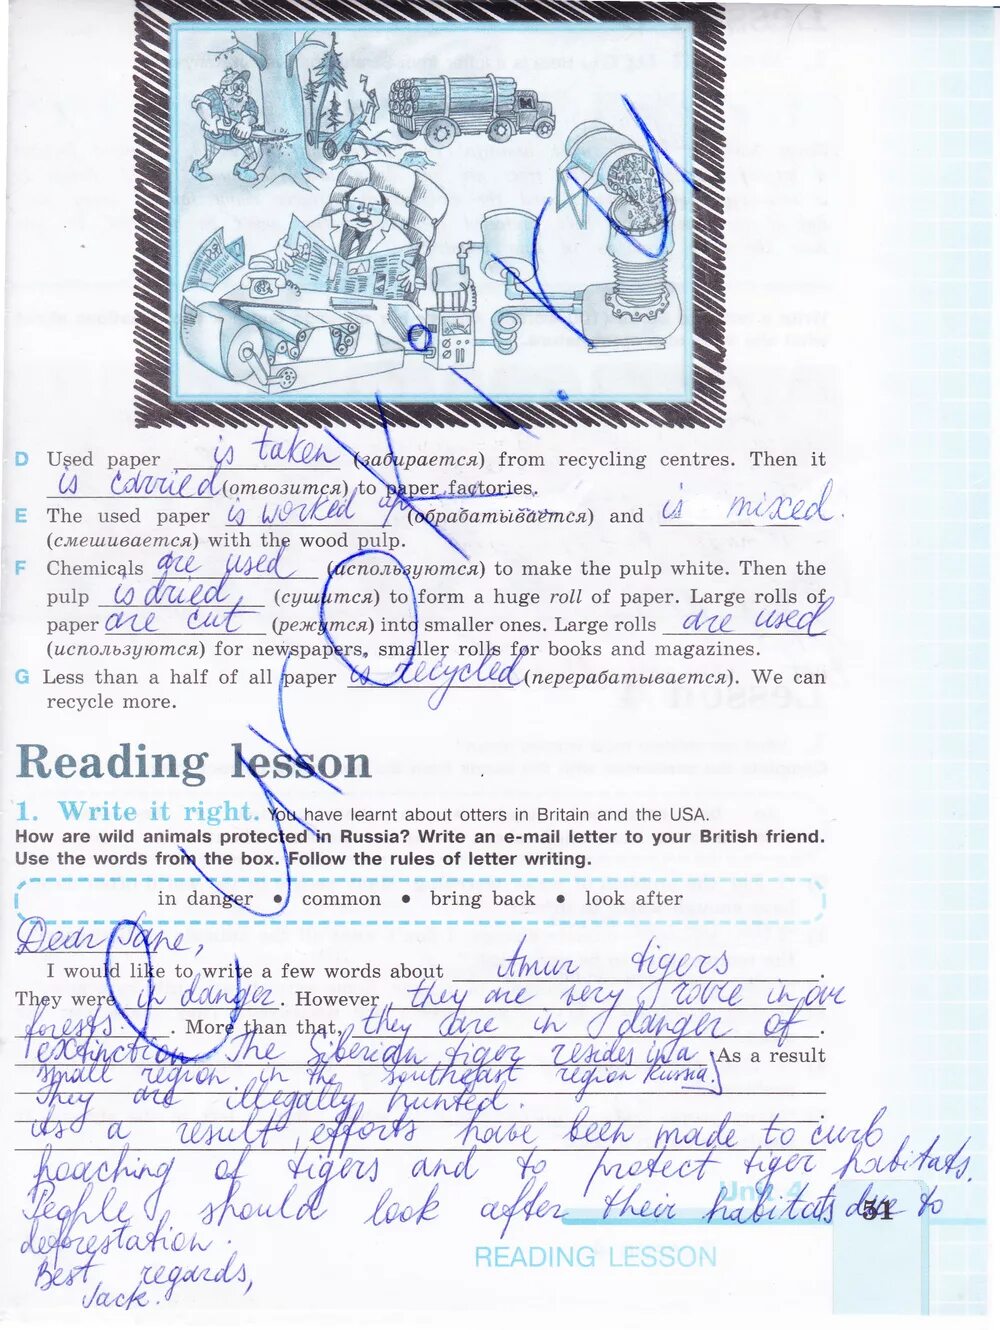 D Used paper is taken (забирается) from recycling centres. Then it
is carried (отвозится) to paper factories.
E The used paper is worked up (обрабатывается) and is mixed.
(смешивается) with the wood pulp.
F Chemicals are used (используются) to make the pulp white. Then the
pulp is dried, (сушится) to form a huge roll of paper. Large rolls of
paper are cut (режутся) into smaller ones. Large rolls are used
(используются) for newspapers, smaller rolls for books and magazines.
G Less than a half of all paper is recycled (перерабатывается). We can
recycle more.
Reading lesson
1. Write it right. You have learnt about otters in Britain and the USA.
How are wild animals protected in Russia? Write an e-mail letter to your British friend.
Use the words from the box. Follow the rules of letter writing.
in danger • common • bring back • look after
Dear Jane,
I would like to write a few words about Amur tigers.
They were in danger. However they are very rare in our
forests. More than that, they are in danger of.
extinction. The Siberian tiger resides in a As a result
small region in the southeast region Russia.
They are illegally hunted.
As a result, efforts have been made to curb
poaching of tigers and to protect tiger habitats.
People should look after their habitats due to
deforestation.
Best regards,
Jack.
Unit 4
51
READING LESSON
e-uroki.ru